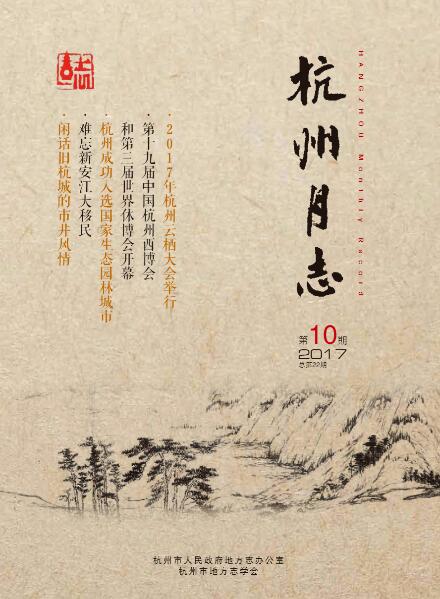 杭州月志
HANGZHOU Monthly Record
第10期
2017
总第22期
·2017年杭州云栖大会举行
·第十九届中国杭州西博会
和第三届世界休博会开幕
·杭州成功入选国家生态园林城市
·难忘新安江大移民
·闲话旧杭城的市井风情
杭州市人民政府地方志办公室
杭州市地方志学会